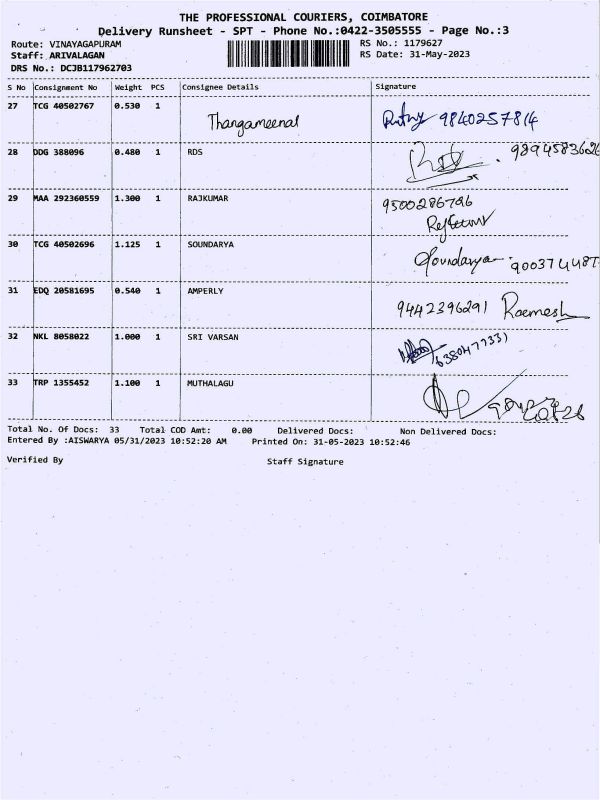 THE PROFESSIONAL COURIERS, COIMBATORE
Delivery Runsheet - SPT - Phone No.:0422-3505555 - Page No.:3
Route: VINAYAGAPURAM RS No.: 1179627
Staff: ARIVALAGAN RS Date: 31-May-2023
DRS No.: DCJB117962703
S No Consignment No Weight PCS Consignee Details Signature
27 TCG 40502767 0.530 1 Thangameenal 9840257814
28 DDG 388096 0.480 1 RDS RDS 9894583626
29 MAA 292360559 1.300 1 RAJKUMAR 9500286726
30 TCG 40502696 1.125 1 SOUNDARYA Soundarya
31 EDQ 20581695 0.540 1 AMPERLY 9442396291 Raemesh
32 NKL 8058022 1.000 1 SRI VARSAN
33 TRP 1355452 1.100 1 MUTHALAGU
Total No. Of Docs: 33 Total COD Amt: 0.00 Delivered Docs: Non Delivered Docs:
Entered By :AISWARYA 05/31/2023 10:52:20 AM Printed On: 31-05-2023 10:52:46
Verified By Staff Signature